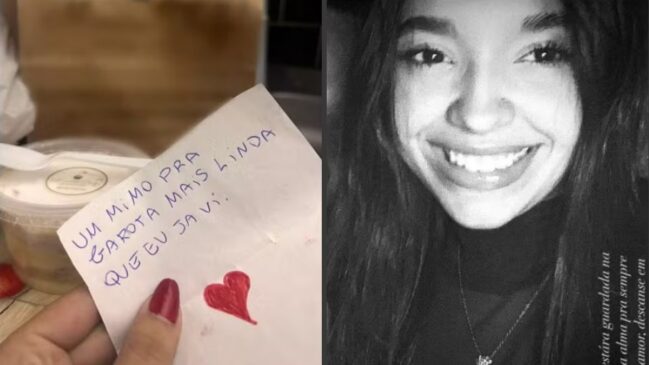 UM MIMO PRA
GAROTA MAIS LINDA
QUE EU JA VI.
estára guardada na
a alma pra sempre
amor, descanse em